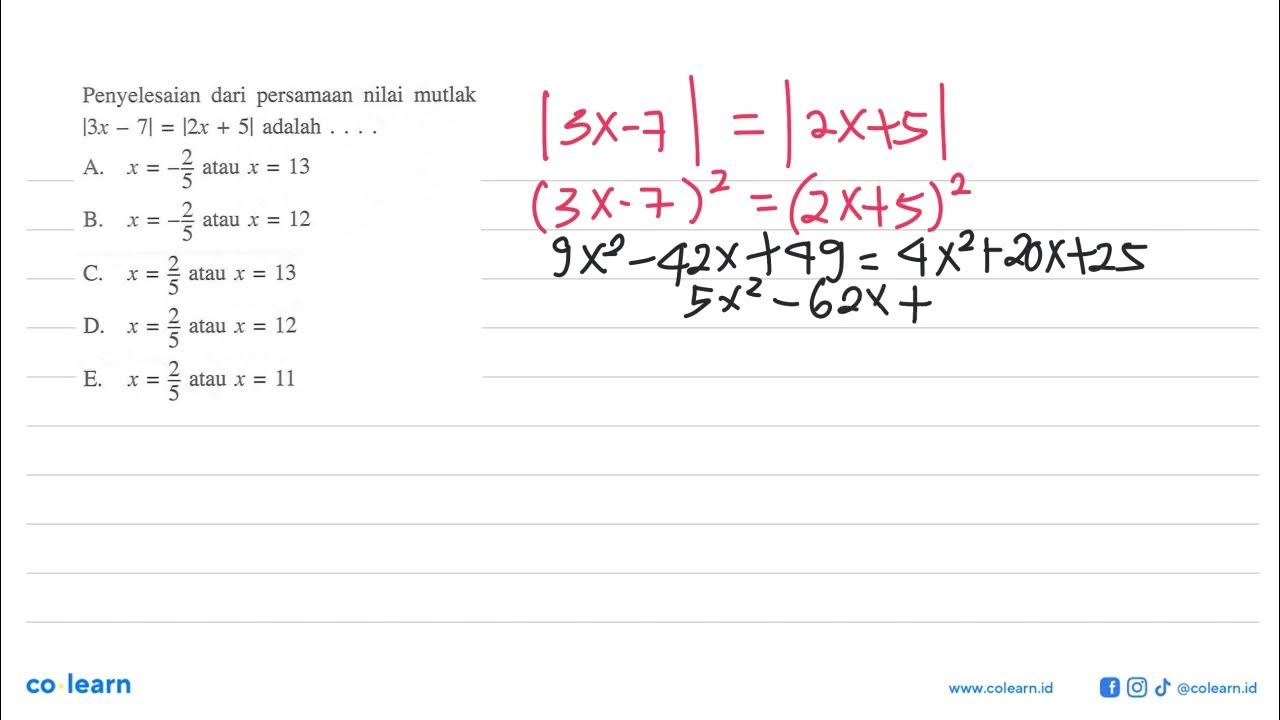 Penyelesaian dari persamaan nilai mutlak
|3x – 7| = |2x + 5| adalah . . . .
A. x = –2/5 atau x = 13
B. x = –2/5 atau x = 12
C. x = 2/5 atau x = 13
D. x = 2/5 atau x = 12
E. x = 2/5 atau x = 11
|3x-7| = |2x+5|
(3x-7)² = (2x+5)²
9x² - 42x + 49 = 4x² + 20x + 25
5x² - 62x +
co·learn
www.colearn.id
@colearn.id